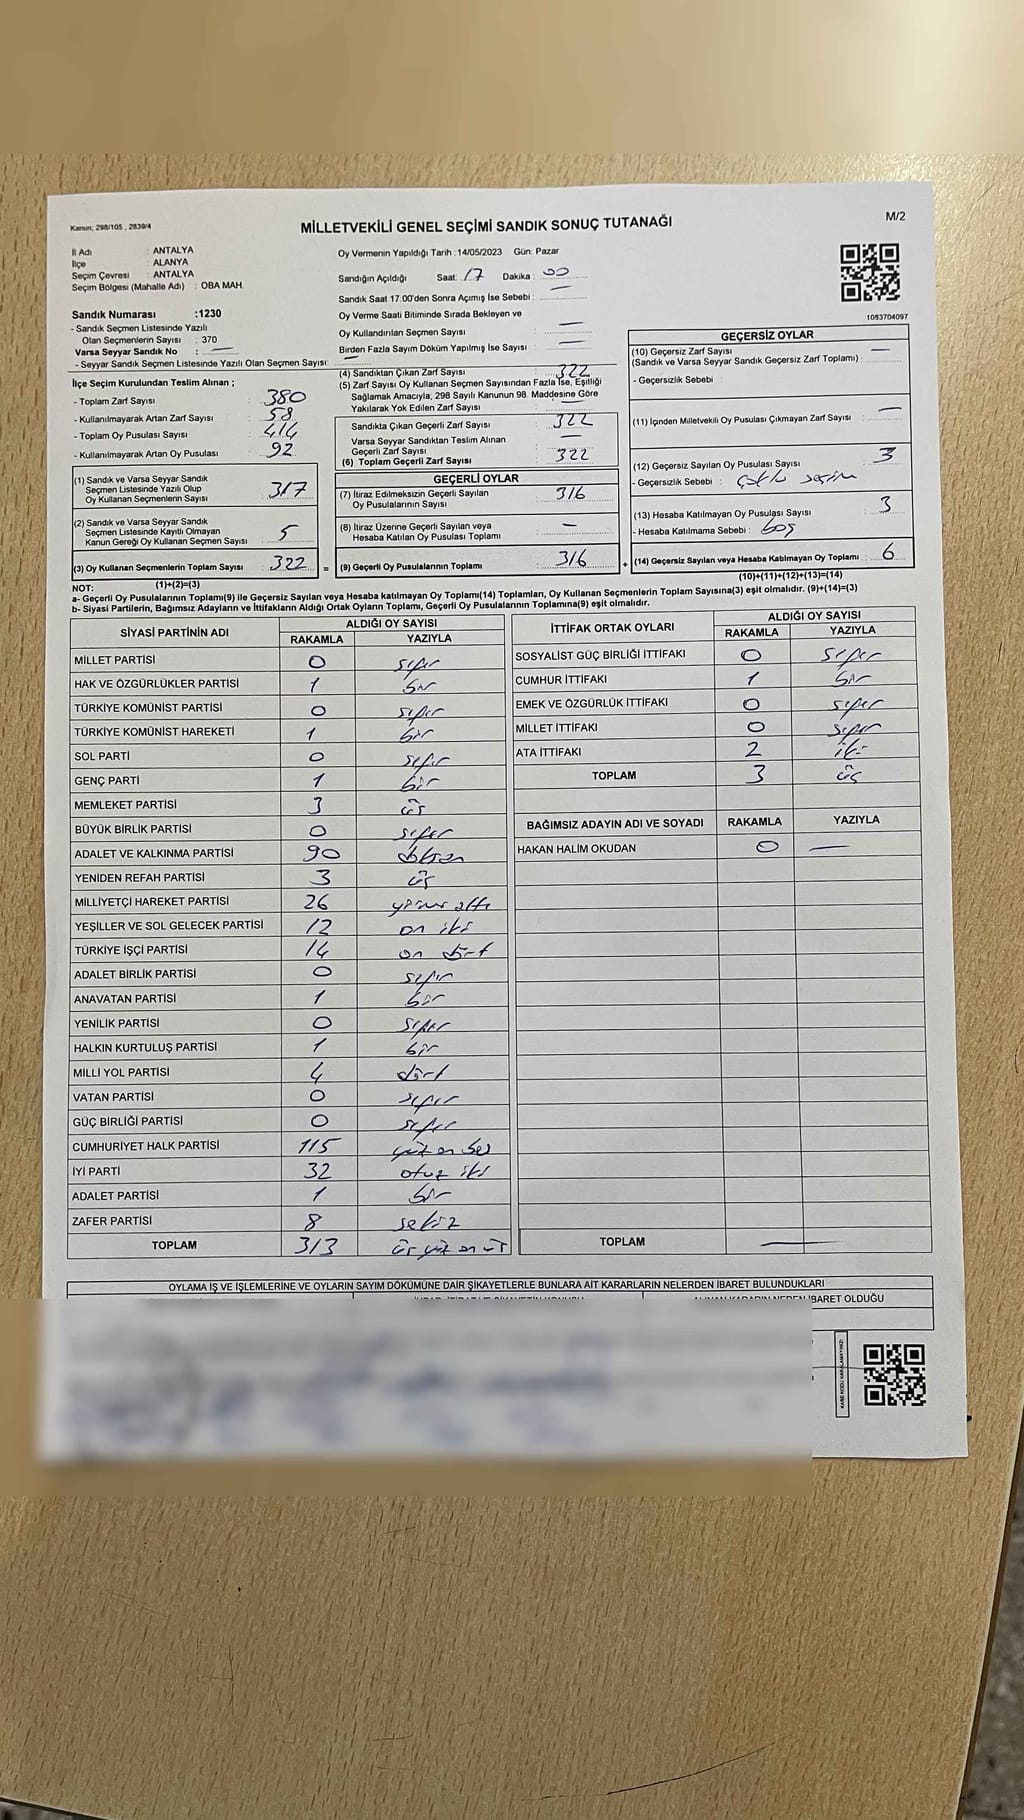 Kanun; 298/105 , 2839/4
MİLLETVEKİLİ GENEL SEÇİMİ SANDIK SONUÇ TUTANAĞI
M/2
İl Adı : ANTALYA
İlçe : ALANYA
Seçim Çevresi : ANTALYA
Seçim Bölgesi (Mahalle Adı) : OBA MAH.
Sandık Numarası :1230
- Sandık Seçmen Listesinde Yazılı
Olan Seçmenlerin Sayısı : 370
Varsa Seyyar Sandık No : —
- Seyyar Sandık Seçmen Listesinde Yazılı Olan Seçmen Sayısı: —
Oy Vermenin Yapıldığı Tarih :14/05/2023 Gün: Pazar
Sandığın Açıldığı Saat: 17 Dakika : 00
Sandık Saat 17:00'den Sonra Açımış İse Sebebi: —
Oy Verme Saati Bitiminde Sırada Bekleyen ve
Oy Kullandırılan Seçmen Sayısı : —
Birden Fazla Sayım Döküm Yapılmış İse Sayısı : —
1083704097
İlçe Seçim Kurulundan Teslim Alınan ;
- Toplam Zarf Sayısı : 380
- Kullanılmayarak Artan Zarf Sayısı : 58
- Toplam Oy Pusulası Sayısı : 414
- Kullanılmayarak Artan Oy Pusulası : 92
(1) Sandık ve Varsa Seyyar Sandık
Seçmen Listesinde Yazılı Olup
Oy Kullanan Seçmenlerin Sayısı : 317
(2) Sandık ve Varsa Seyyar Sandık
Seçmen Listesinde Kayıtlı Olmayan
Kanun Gereği Oy Kullanan Seçmen Sayısı : 5
(3) Oy Kullanan Seçmenlerin Toplam Sayısı : 322
(4) Sandıktan Çıkan Zarf Sayısı : 322
(5) Zarf Sayısı Oy Kullanan Seçmen Sayısından Fazla İse, Eşitliği
Sağlamak Amacıyla, 298 Sayılı Kanunun 98. Maddesine Göre
Yakılarak Yok Edilen Zarf Sayısı : —
Sandıkta Çıkan Geçerli Zarf Sayısı : 322
Varsa Seyyar Sandıktan Teslim Alınan
Geçerli Zarf Sayısı : —
(6) Toplam Geçerli Zarf Sayısı : 322
GEÇERLİ OYLAR
(7) İtiraz Edilmeksizin Geçerli Sayılan
Oy Pusulalarının Sayısı : 316
(8) İtiraz Üzerine Geçerli Sayılan veya
Hesaba Katılan Oy Pusulası Toplamı : —
= (9) Geçerli Oy Pusulalarının Toplamı : 316
GEÇERSİZ OYLAR
(10) Geçersiz Zarf Sayısı —
(Sandık ve Varsa Seyyar Sandık Geçersiz Zarf Toplamı) :
- Geçersizlik Sebebi :
(11) İçinden Milletvekili Oy Pusulası Çıkmayan Zarf Sayısı : —
(12) Geçersiz Sayılan Oy Pusulası Sayısı : 3
- Geçersizlik Sebebi : çoklu seçim
(13) Hesaba Katılmayan Oy Pusulası Sayısı : 3
- Hesaba Katılmama Sebebi : boş
+ (14) Geçersiz Sayılan veya Hesaba Katılmayan Oy Toplamı : 6
(1)+(2)=(3)
(10)+(11)+(12)+(13)=(14)
NOT:
a- Geçerli Oy Pusulalarının Toplamı(9) ile Geçersiz Sayılan veya Hesaba Katılmayan Oy Toplamı(14) Toplamları, Oy Kullanan Seçmenlerin Toplam Sayısına(3) eşit olmalıdır. (9)+(14)=(3)
b- Siyasi Partilerin, Bağımsız Adayların ve İttifakların Aldığı Ortak Oyların Toplamı, Geçerli Oy Pusulalarının Toplamına(9) eşit olmalıdır.
SİYASİ PARTİNİN ADI ALDIĞI OY SAYISI
RAKAMLA YAZIYLA
MİLLET PARTİSİ 0 sıfır
HAK VE ÖZGÜRLÜKLER PARTİSİ 1 bir
TÜRKİYE KOMÜNİST PARTİSİ 0 sıfır
TÜRKİYE KOMÜNİST HAREKETİ 1 bir
SOL PARTİ 0 sıfır
GENÇ PARTİ 1 bir
MEMLEKET PARTİSİ 3 üç
BÜYÜK BİRLİK PARTİSİ 0 sıfır
ADALET VE KALKINMA PARTİSİ 90 doksan
YENİDEN REFAH PARTİSİ 3 üç
MİLLİYETÇİ HAREKET PARTİSİ 26 yirmi altı
YEŞİLLER VE SOL GELECEK PARTİSİ 12 on iki
TÜRKİYE İŞÇİ PARTİSİ 14 on dört
ADALET BİRLİK PARTİSİ 0 sıfır
ANAVATAN PARTİSİ 1 bir
YENİLİK PARTİSİ 0 sıfır
HALKIN KURTULUŞ PARTİSİ 1 bir
MİLLİ YOL PARTİSİ 4 dört
VATAN PARTİSİ 0 sıfır
GÜÇ BİRLİĞİ PARTİSİ 0 sıfır
CUMHURİYET HALK PARTİSİ 115 yüz on beş
İYİ PARTİ 32 otuz iki
ADALET PARTİSİ 1 bir
ZAFER PARTİSİ 8 sekiz
TOPLAM 313 üç yüz on üç
İTTİFAK ORTAK OYLARI ALDIĞI OY SAYISI
RAKAMLA YAZIYLA
SOSYALİST GÜÇ BİRLİĞİ İTTİFAKI 0 sıfır
CUMHUR İTTİFAKI 1 bir
EMEK VE ÖZGÜRLÜK İTTİFAKI 0 sıfır
MİLLET İTTİFAKI 0 sıfır
ATA İTTİFAKI 2 iki
TOPLAM 3 üç
BAĞIMSIZ ADAYIN ADI VE SOYADI RAKAMLA YAZIYLA
HAKAN HALİM OKUDAN 0 —
TOPLAM —
OYLAMA İŞ VE İŞLEMLERİNE VE OYLARIN SAYIM DÖKÜMÜNE DAİR ŞİKAYETLERLE BUNLARA AİT KARARLARIN NELERDEN İBARET BULUNDUKLARI
İBARET OLDUĞU